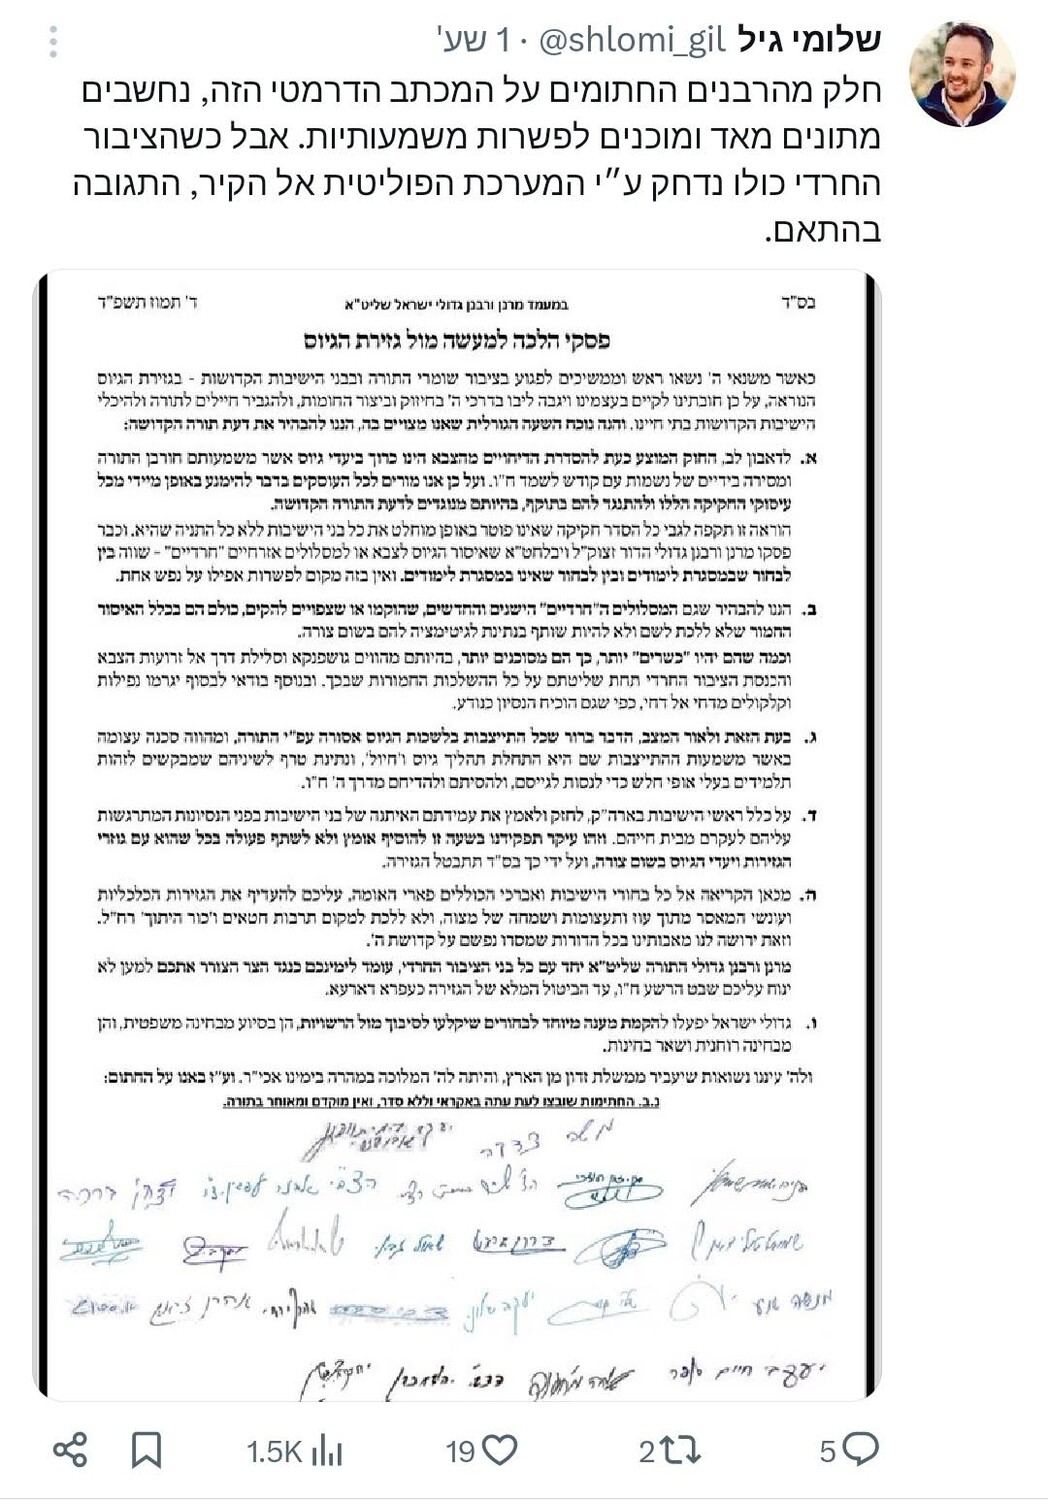 שלומי גיל @shlomi_gil · 1 שע'
חלק מהרבנים החתומים על המכתב הדרמטי הזה, נחשבים
מתונים מאד ומוכנים לפשרות משמעותיות. אבל כשהציבור
החרדי כולו נדחק ע״י המערכת הפוליטית אל הקיר, התגובה
בהתאם.
בס"ד
במעמד מרנן ורבנן גדולי ישראל שליט"א
ד' תמוז תשפ"ד
פסקי הלכה למעשה מול גזירת הגיוס
כאשר משנאי ה' נשאו ראש וממשיכים לפגוע בציבור שומרי התורה ובבני הישיבות הקדושות - בגזירת הגיוס
הנוראה, על כן חובתינו לקיים בעצמינו ויגבה ליבו בדרכי ה' בחיזוק וביצור החומות, ולהגביר חיילים לתורה ולהיכלי
הישיבות הקדושות בתי חיינו. והנה נוכח השעה הגורלית שאנו מצויים בה, הננו להבהיר את דעת תורה הקדושה:
א. לדאבון לב, החוק המוצע כעת להסדרת הדיחויים מהצבא הינו כרוך ביעדי גיוס אשר משמעותם חורבן התורה
ומסירה בידיים של נשמות עם קודש לשמד ח"ו. ועל כן אנו מורים לכל העוסקים בדבר להימנע באופן מיידי מכל
עיסוקי החקיקה הללו ולהתנגד להם בתוקף, בהיותם מנוגדים לדעת התורה הקדושה.
הוראה זו תקפה לגבי כל הסדר חקיקה שאינו פוטר באופן מוחלט את כל בני הישיבות ללא כל התניה שהיא. וכבר
פסקו מרנן ורבנן גדולי הדור זצוק"ל ויבלחט"א שאיסור הגיוס לצבא או למסלולים אזרחיים "חרדיים" - שווה בין
לבחור שבמסגרת לימודים ובין לבחור שאינו במסגרת לימודים. ואין בזה מקום לפשרות אפילו על נפש אחת.
ב. הננו להבהיר שגם המסלולים ה"חרדיים" הישנים והחדשים, שהוקמו או שצפויים להקים, כולם הם בכלל האיסור
החמור שלא ללכת לשם ולא להיות שותף בנתינת לגיטימציה להם בשום צורה.
וכמה שהם יהיו "כשרים" יותר, כך הם מסוכנים יותר, בהיותם מהווים גושפנקא וסלילת דרך אל זרועות הצבא
והכנסת הציבור החרדי תחת שליטתם על כל ההשלכות החמורות שבכך. ובנוסף בודאי לבסוף יגרמו נפילות
וקלקולים מדחי אל דחי, כפי שגם הוכיח הנסיון כנודע.
ג. בעת הזאת ולאור המצב, הדבר ברור שכל התייצבות בלשכות הגיוס אסורה עפ"י התורה, ומהווה סכנה עצומה
באשר משמעות ההתייצבות שם היא התחלת תהליך גיוס ו'חיול', ונתינת טרף לשיניהם שמבקשים לזהות
תלמידים בעלי אופי חלש כדי לנסות לגייסם, ולהסיתם ולהדיחם מדרך ה' ח"ו.
ד. על כלל ראשי הישיבות בארה"ק, לחזק ולאמץ את עמידתם האיתנה של בני הישיבות בפני הנסיונות המתרגשות
עליהם לעקרם מבית חייהם. וזהו עיקר תפקידינו בשעה זו להוסיף אומץ ולא לשתף פעולה בכל שהוא עם גוזרי
הגזירות ויעדי הגיוס בשום צורה, ועל ידי כך בס"ד תתבטל הגזירה.
ה. מכאן הקריאה אל כל בחורי הישיבות ואברכי הכוללים פארי האומה, עליכם להעדיף את הגזירות הכלכליות
ועונשי המאסר מתוך עוז ותעצומות ושמחה של מצוה, ולא ללכת למקום תרבות חטאים ו'כור היתוך' רח"ל.
וזאת ירושה לנו מאבותינו בכל הדורות שמסרו נפשם על קדושת ה'.
מרנן ורבנן גדולי התורה שליט"א יחד עם כל בני הציבור החרדי, עומד לימינכם כנגד הצר הצורר אתכם למען לא
ינוח עליכם שבט הרשע ח"ו, עד הביטול המלא של הגזירה כעפרא דארעא.
ו. גדולי ישראל יפעלו להקמת מענה מיוחד לבחורים שיקלעו לסיבוך מול הרשויות, הן בסיוע מבחינה משפטית, והן
מבחינה רוחנית ושאר בחינות.
ולה' עיננו נשואות שיעביר ממשלת זדון מן הארץ, והיתה לה' המלוכה במהרה בימינו אכי"ר. וע"ז באנו על החתום:
נ.ב. החתימות שובצו לעת עתה באקראי וללא סדר, ואין מוקדם ומאוחר בתורה.
משה צדקה
יעקב חיים סופר
5
2
19
1.5K